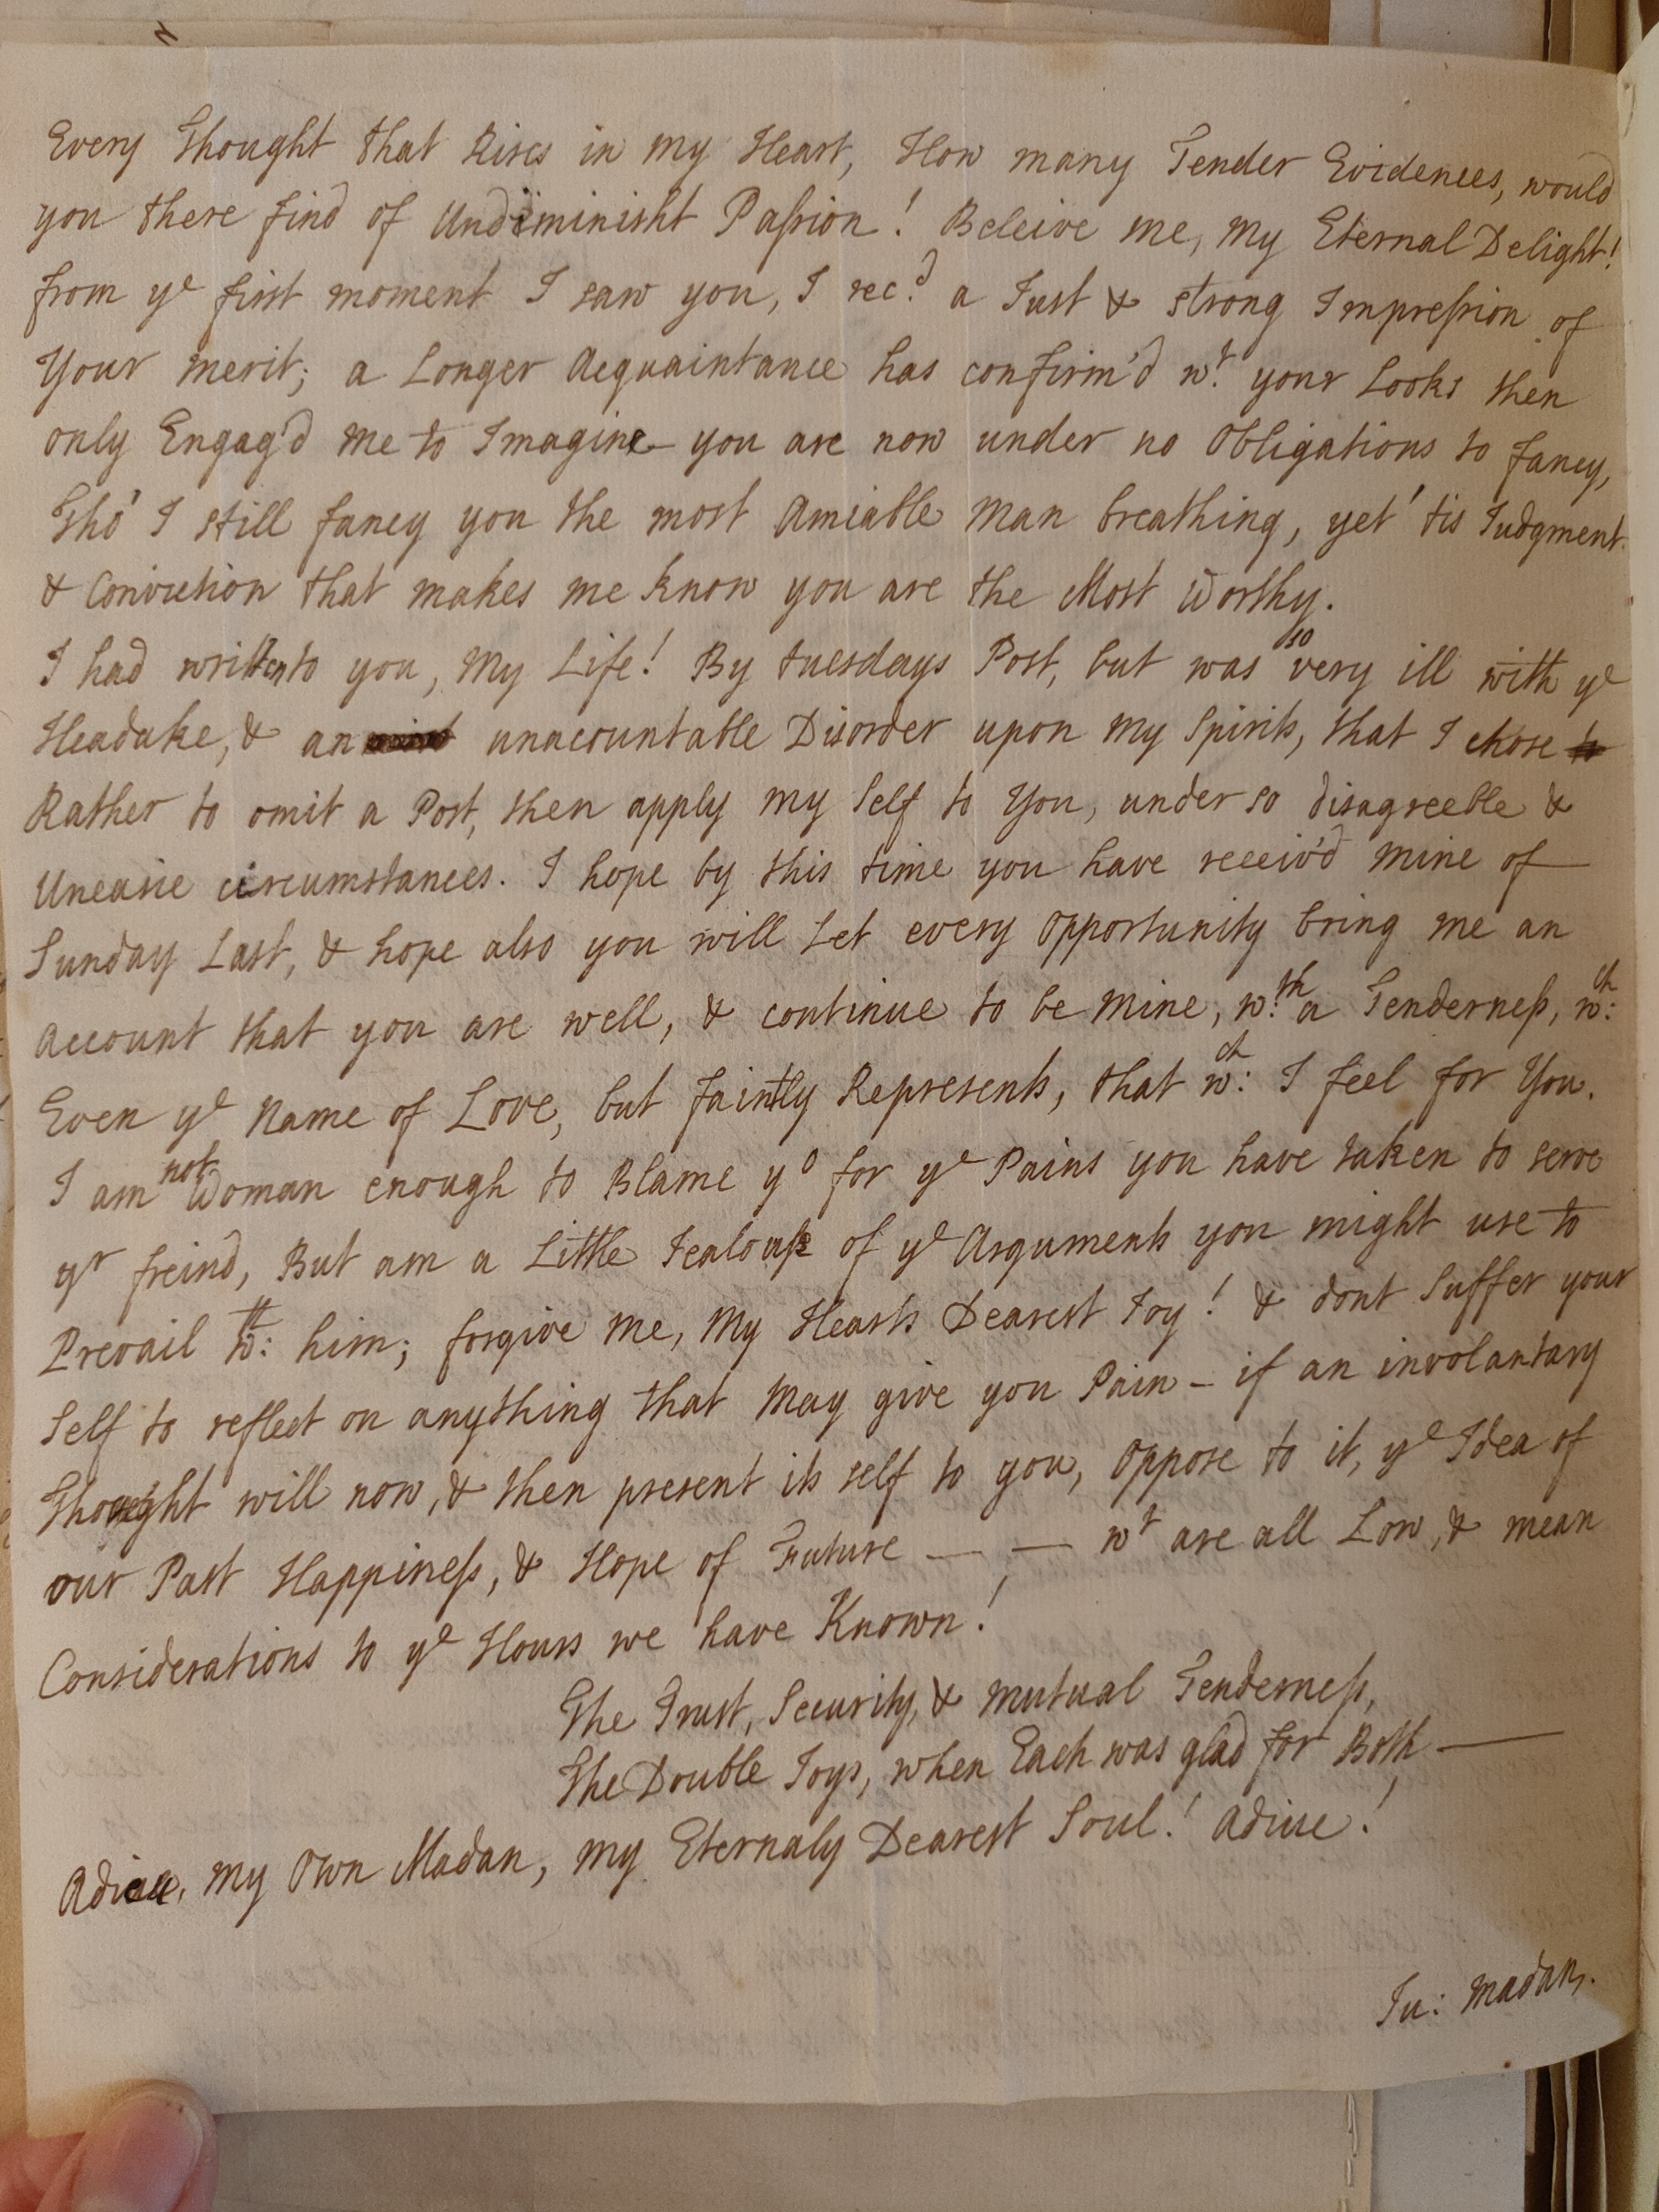 Every Thought that Rises in my Heart, How many Tender Evidences, would
you there find of Undiminisht Passion! Beleive me, my Eternal Delight!
from yᵉ first moment I saw you, I recᵈ a Just & strong Impression of
Your merit; a Longer Acquaintance has confirm'd wᵗ your Looks then
only Engag'd me to Imagine – you are now under no Obligations to fancy,
Tho' I still fancy you the most Amiable Man breathing, yet 'tis Judgment
& Conviction that makes me know you are the Most Worthy.
I had written to you, My Life! By tuesdays Post, but was so very ill with yᵉ
Headake, & an unacountable Disorder upon my Spirits, that I chose to
Rather to omit a Post, then apply my Self to You, under so disagreeble &
Uneasie circumstances. I hope by this time you have receiv'd mine of
Sunday Last, & hope also you will Let every Opportunity bring me an
Account that you are well, & continue to be Mine, wᵗʰ a Tenderness, wᶜʰ
Even yᵉ Name of Love, but faintly Represents, that wᶜʰ I feel for You.
I am not Woman enough to Blame yᵒ for yᵉ Pains you have taken to serve
yʳ freind, But am a Little Jealouse of yᵉ Arguments you might use to
Prevail wᵗʰ him; forgive me, My Hearts Dearest Joy! & dont Suffer your
Self to reflect on anything that May give you Pain – if an involantary
Thought will now, & then present its self to you, Oppose to it, yᵉ Idea of
our Past Happiness, & Hope of Future — — wᵗ are all Low, & mean
Considerations to yᵉ Hours we have Known!
The Trust, Security, & mutual Tenderness,
The Double Joys, when Each was glad for Both —
Adieu, my Own Madan, my Eternaly Dearest Soul! adiue!
Ju: Madan.